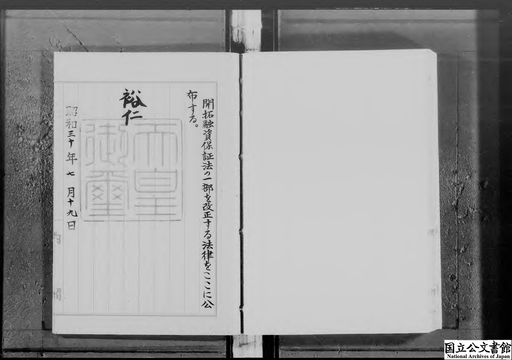 開拓融資保証法の一部を改正する法律をここに公
布する。
裕仁
天皇
御璽
昭和三十年七月十九日
国立公文書館
National Archives of Japan